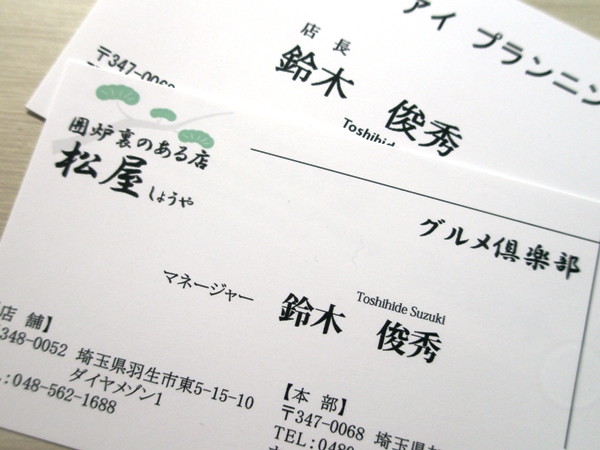 アイ プランニン
店 長
鈴木 俊秀
〒347-00
囲炉裏のある店
松屋 しょうや
グルメ倶楽部
マネージャー
Toshihide Suzuki
鈴木 俊秀
店 舗】
348-0052 埼玉県羽生市東5-15-10
ダイヤメゾン1
:048-562-1688
【本 部】
〒347-0068 埼玉県
TEL:0480